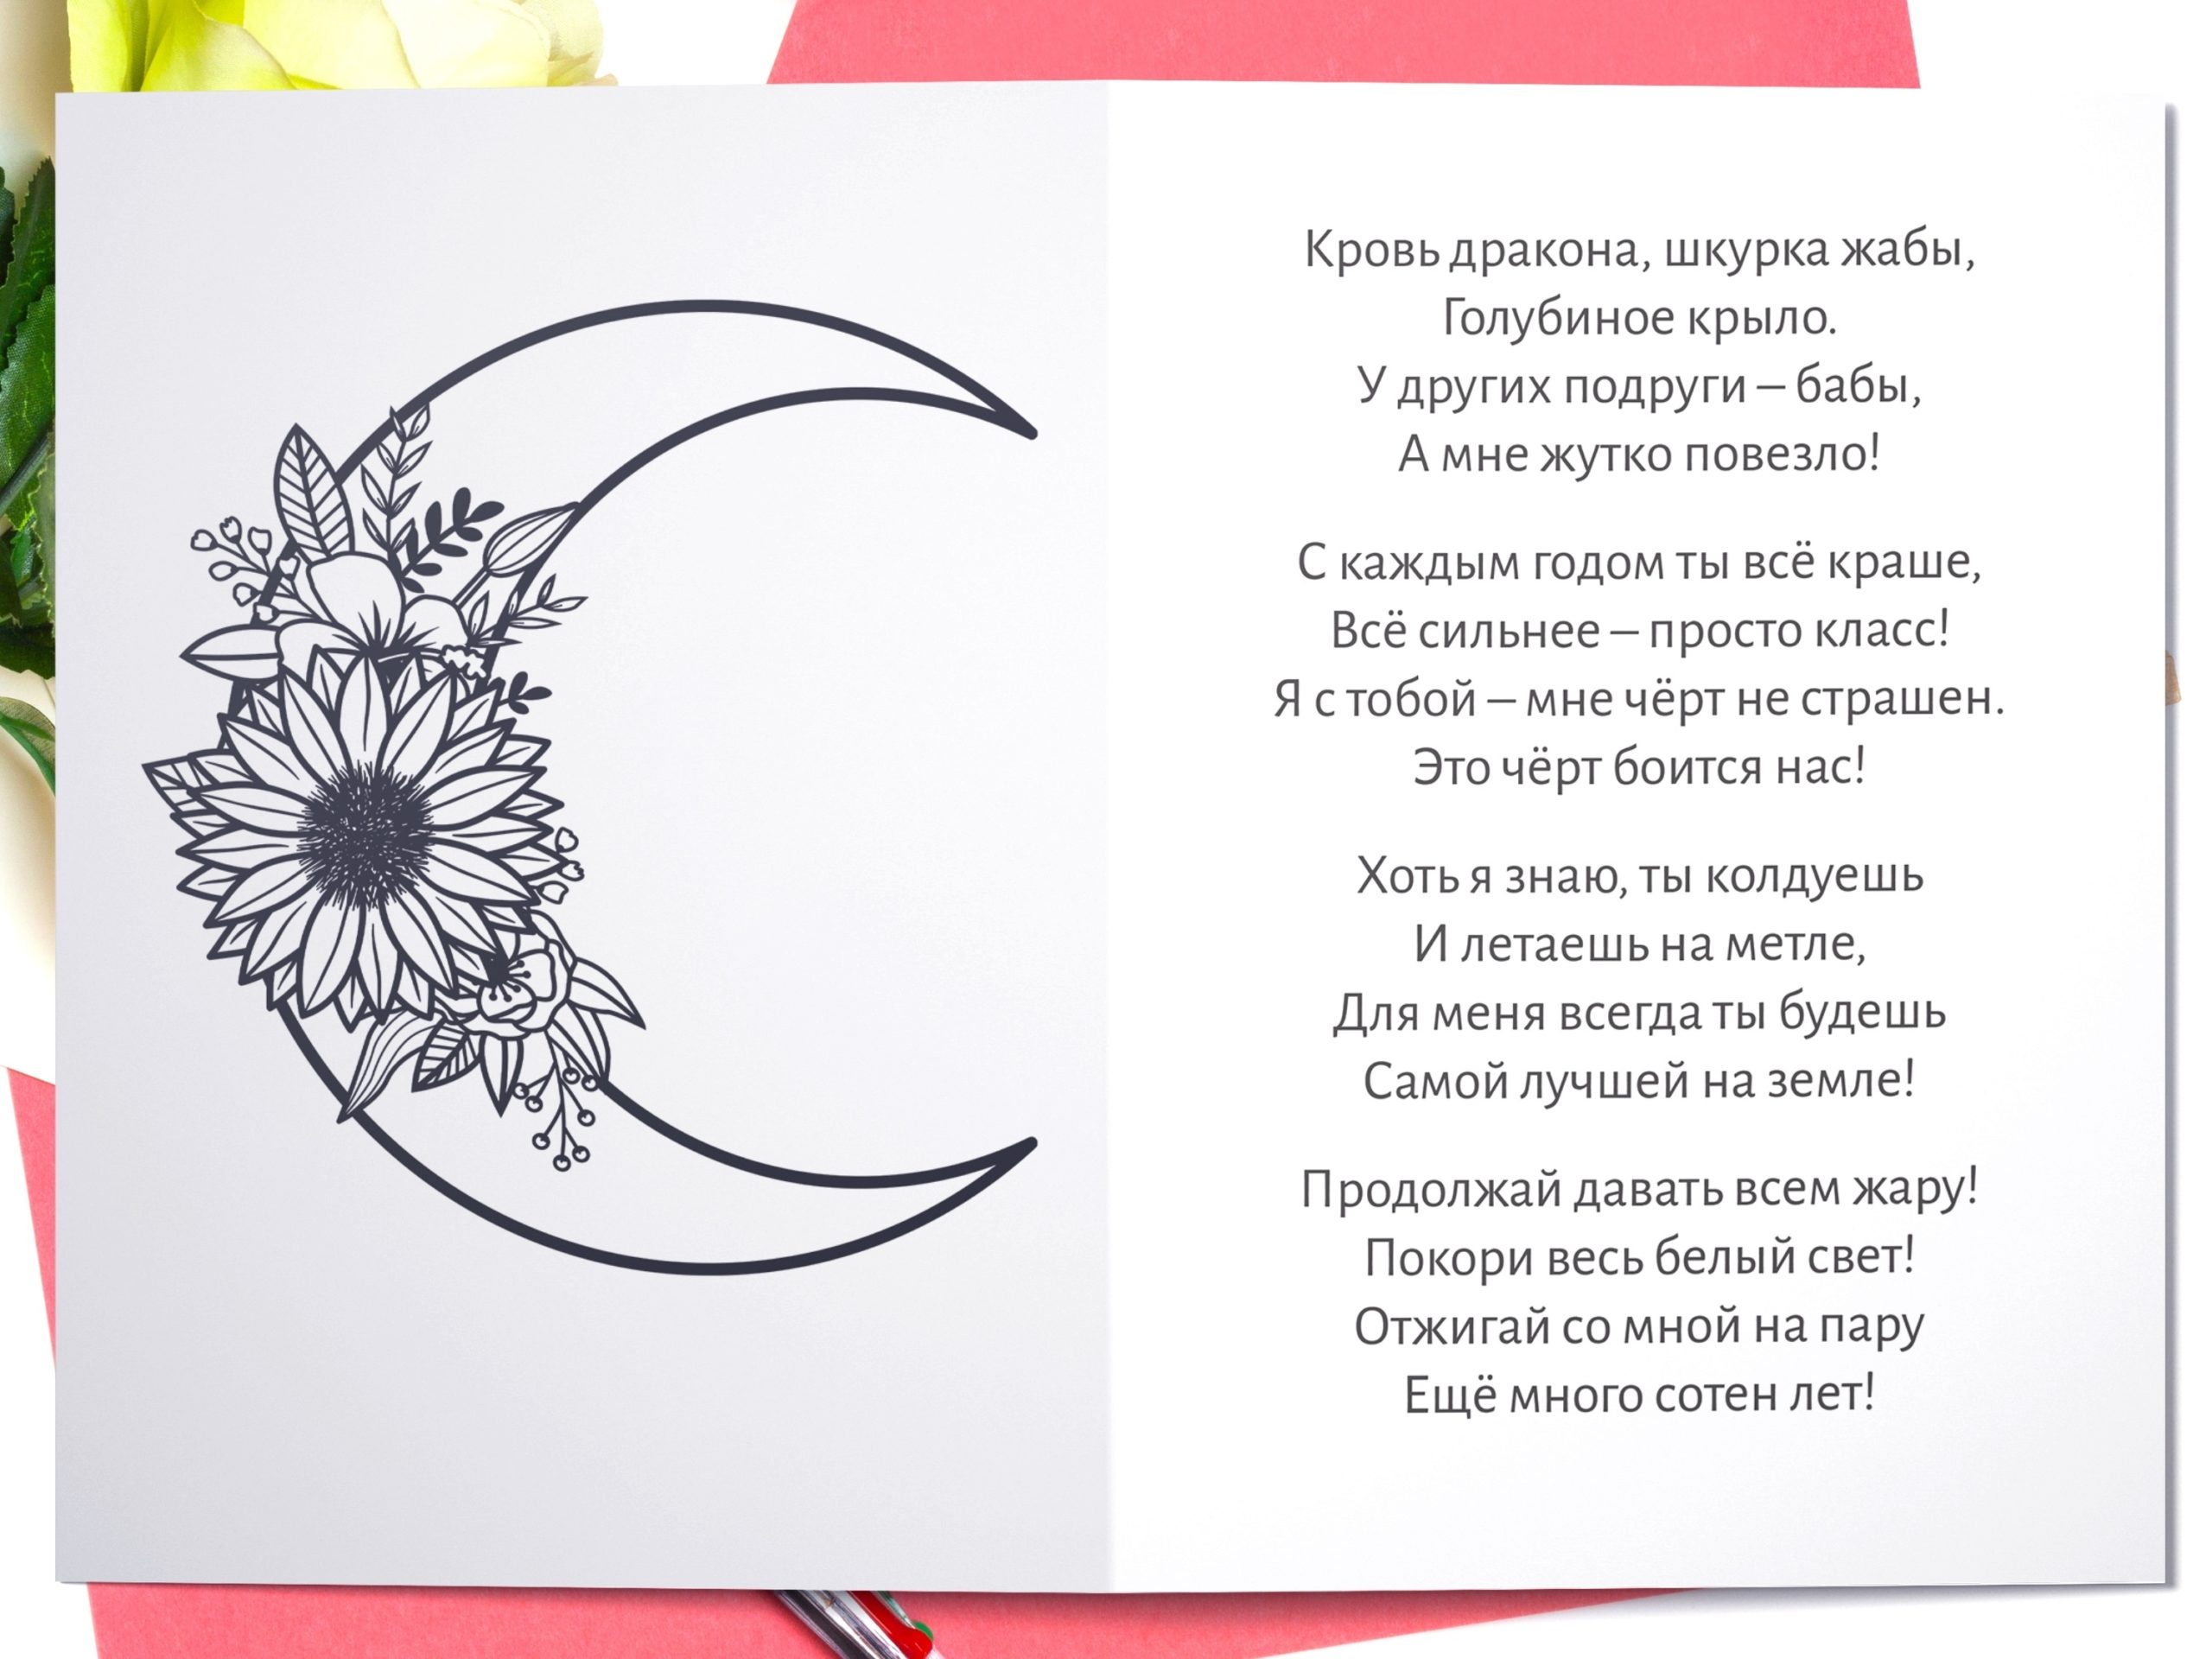 Кровь дракона, шкурка жабы,
Голубиное крыло.
У других подруги – бабы,
А мне жутко повезло!
С каждым годом ты всё краше,
Всё сильнее – просто класс!
Я с тобой – мне чёрт не страшен.
Это чёрт боится нас!
Хоть я знаю, ты колдуешь
И летаешь на метле,
Для меня всегда ты будешь
Самой лучшей на земле!
Продолжай давать всем жару!
Покори весь белый свет!
Отжигай со мной на пару
Ещё много сотен лет!